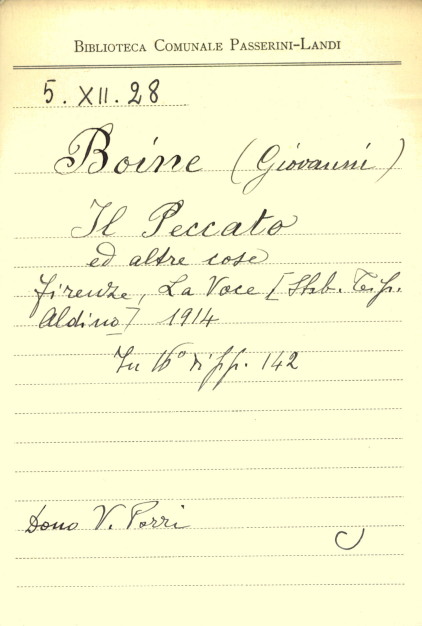 Biblioteca Comunale Passerini-Landi
5. XII. 28
Boine (Giovanni)
Il Peccato
ed altre cose
Firenze, La Voce [Stab. Tip.
Aldino] 1914
In 16° di pp. 142
Dono V. Porri